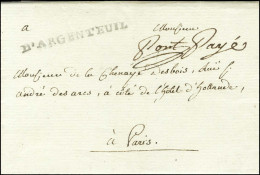 a Monsieur
D'ARGENTEUIL
Port Payé
Monsieur de la Chenaye desbois, rüe St
andré des arcs, a côté de l'hôtel d'hollande,
à Paris.